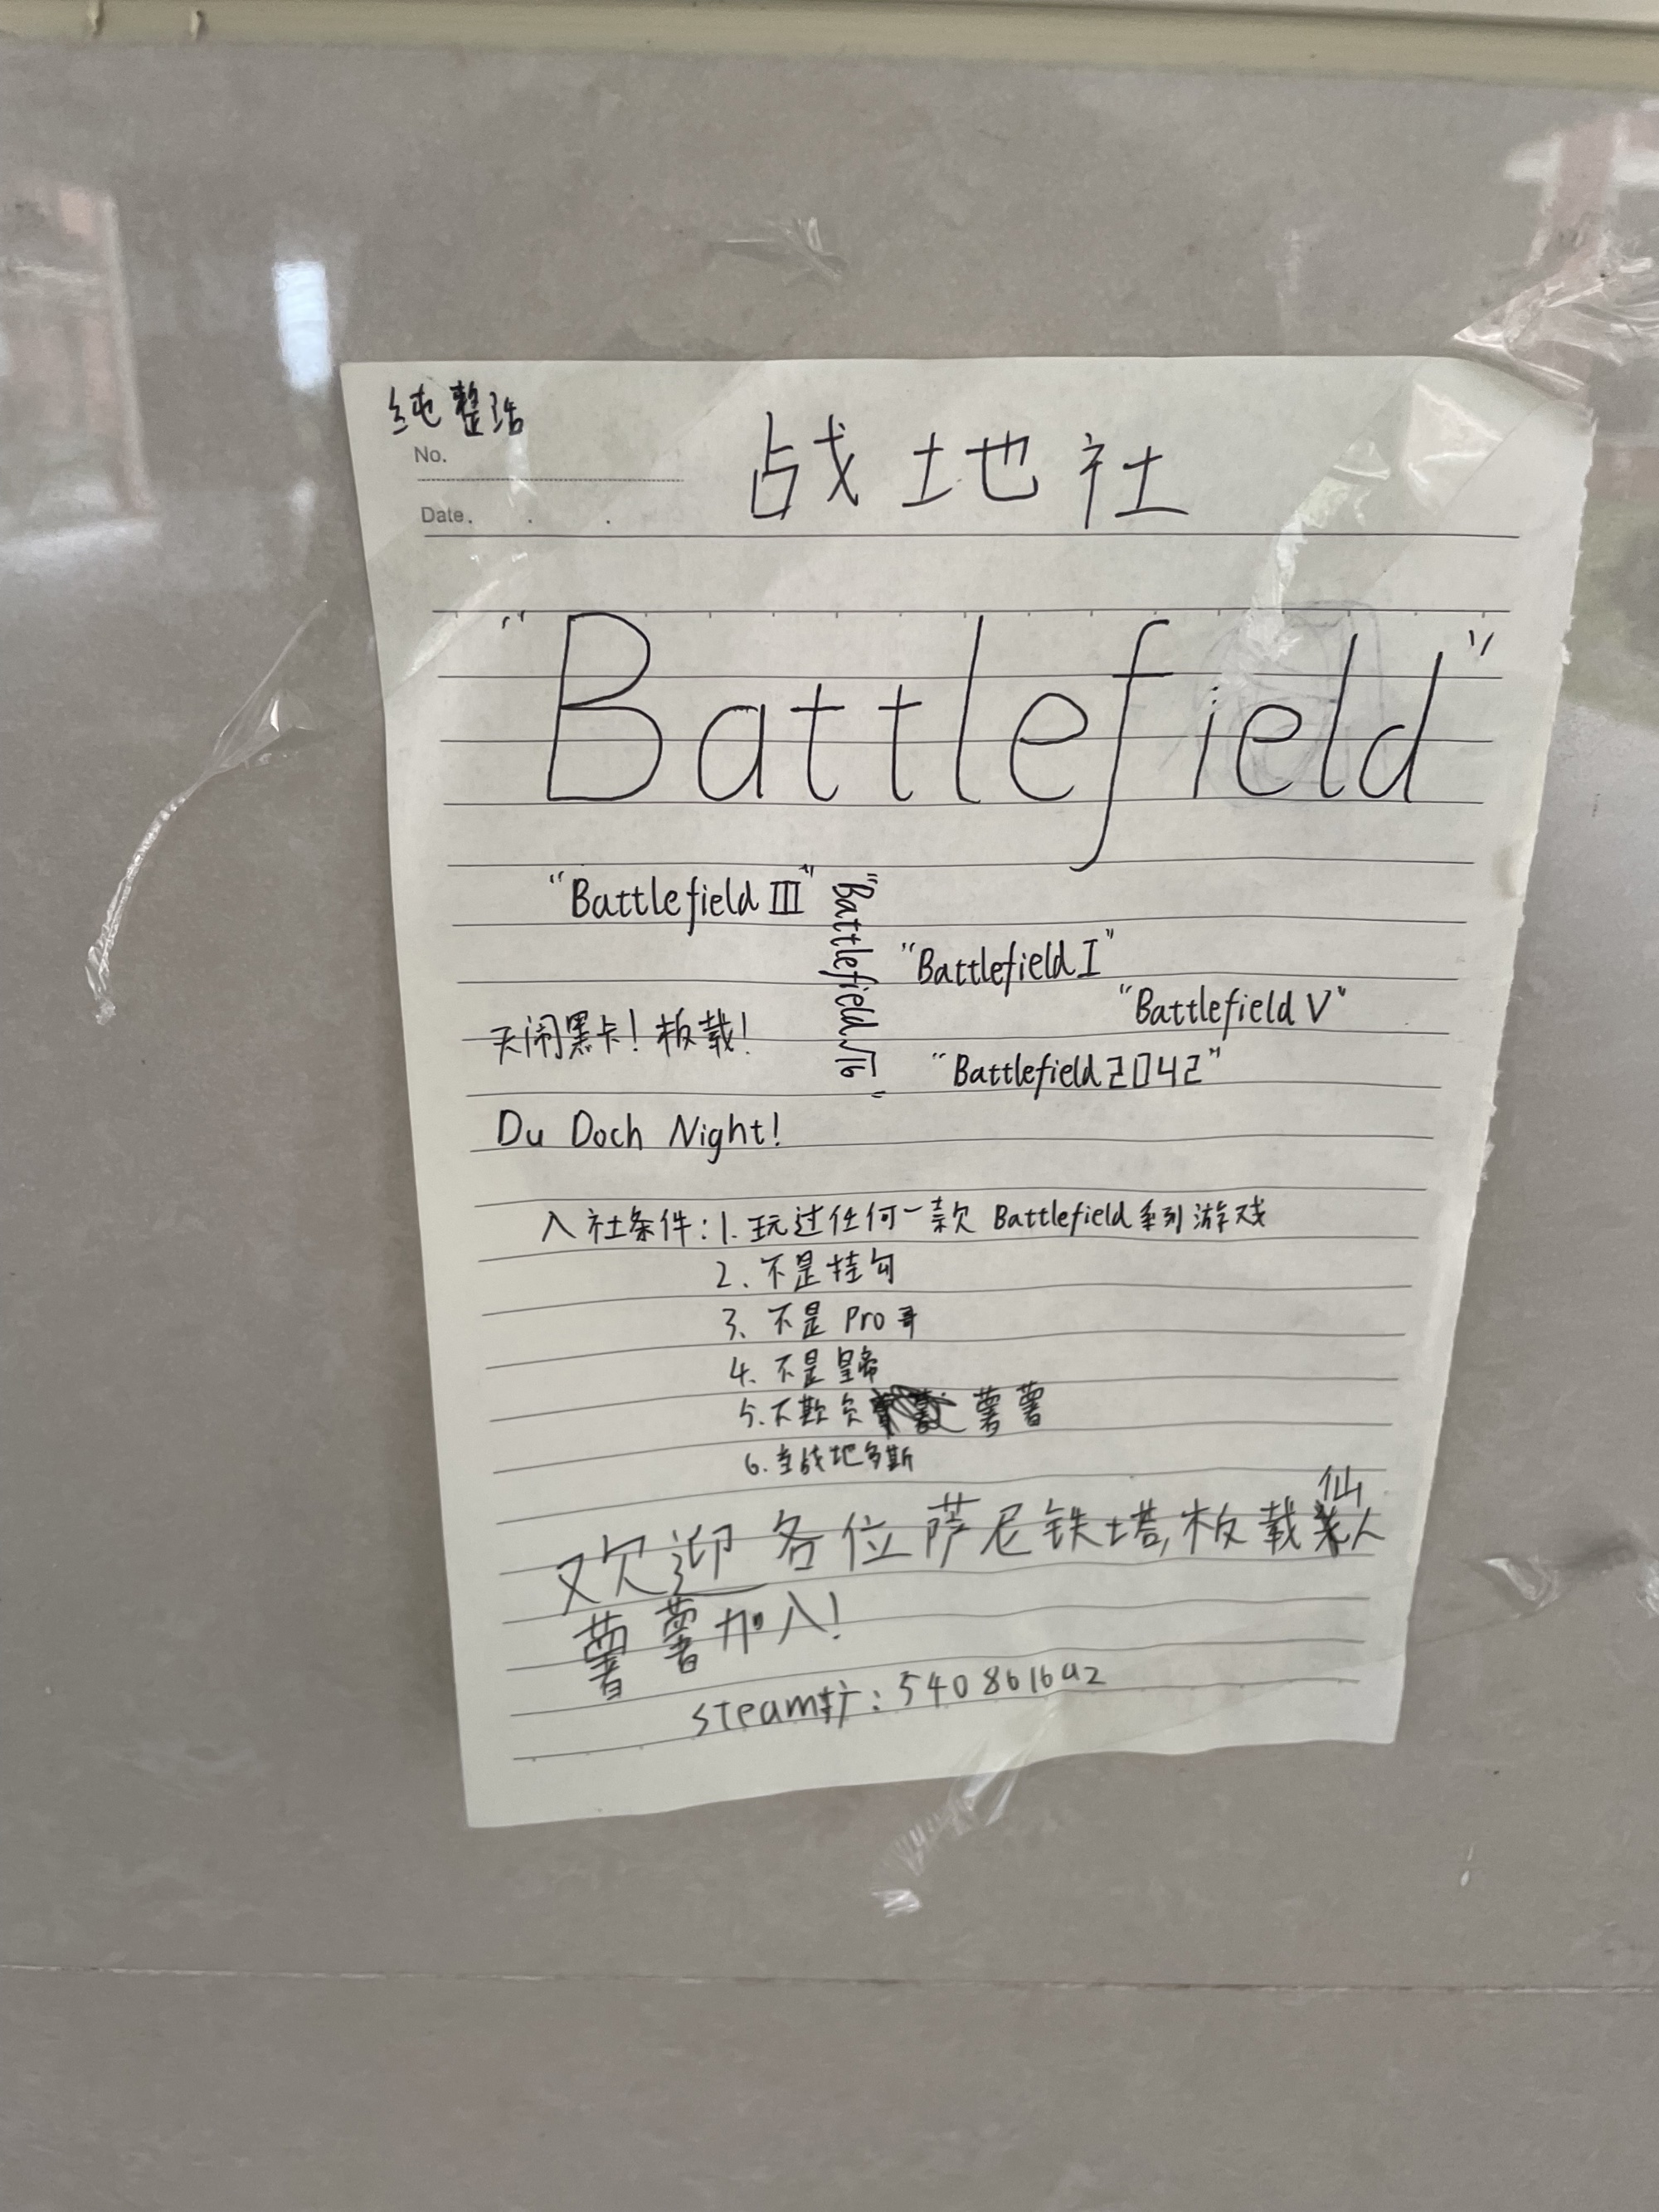 纯整活
No.
Date.
战地社
"Battlefield"
"Battlefield III"
"Battlefield √16"
"Battlefield I"
"Battlefield V"
天闹黑卡！板载！
"Battlefield 2042"
Du Doch Night!
入社条件：1. 玩过任何一款 Battlefield 系列游戏
2. 不是挂勾
3. 不是 Pro哥
4. 不是皇帝
5. 不欺负薯薯
6. 当战地多斯
欢迎各位萨尼铁塔，板载仙人
薯薯加入！
steam扩：540861642